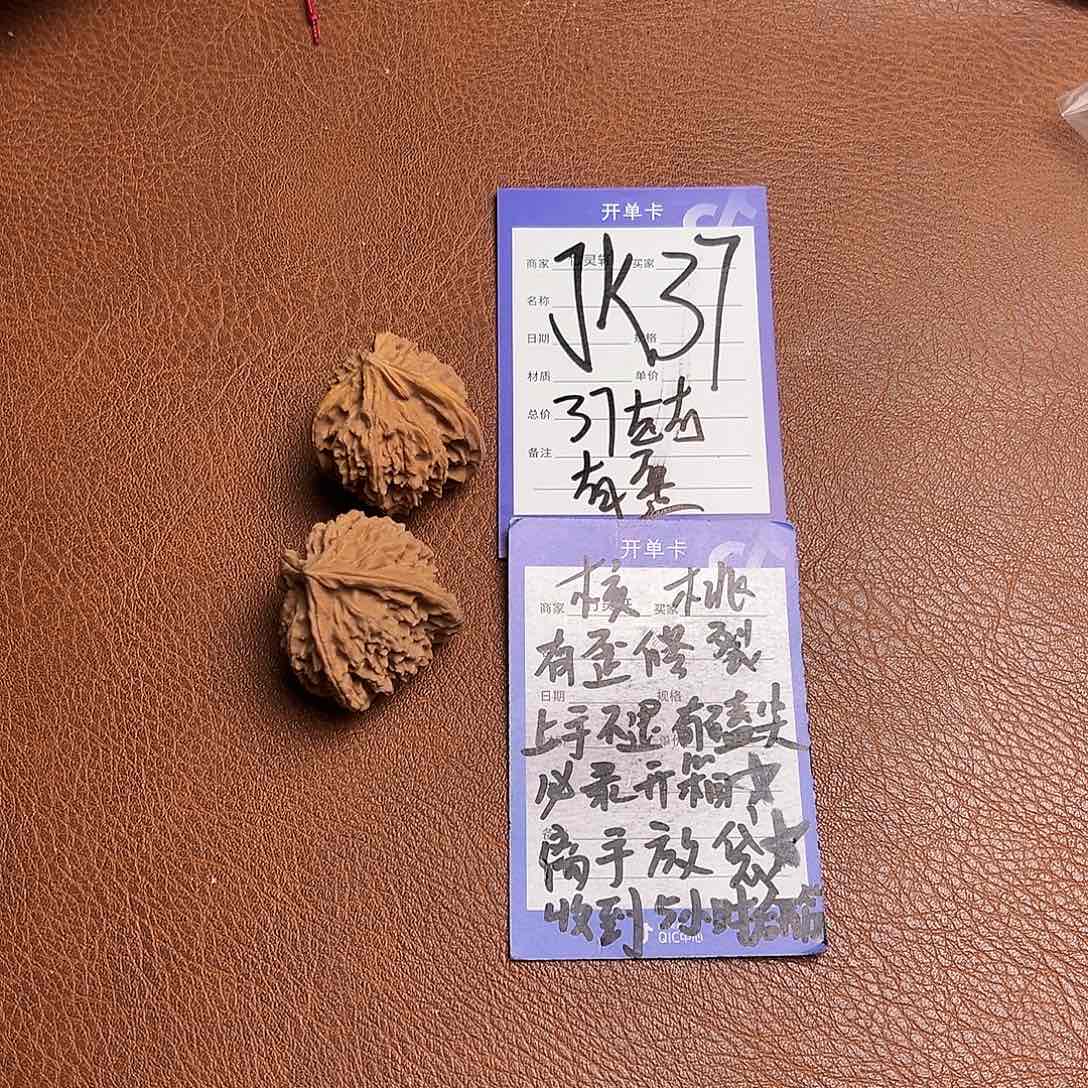 开单卡
商家 灵轩 买家
JK37
名称
日期 规格
材质 单价
总价 37
备注
有歪
开单卡
核桃
商家 买家
有歪修裂
日期 规格
上手不退 有磕尖
必录开箱
离手放袋
收到5小时
QIC中心